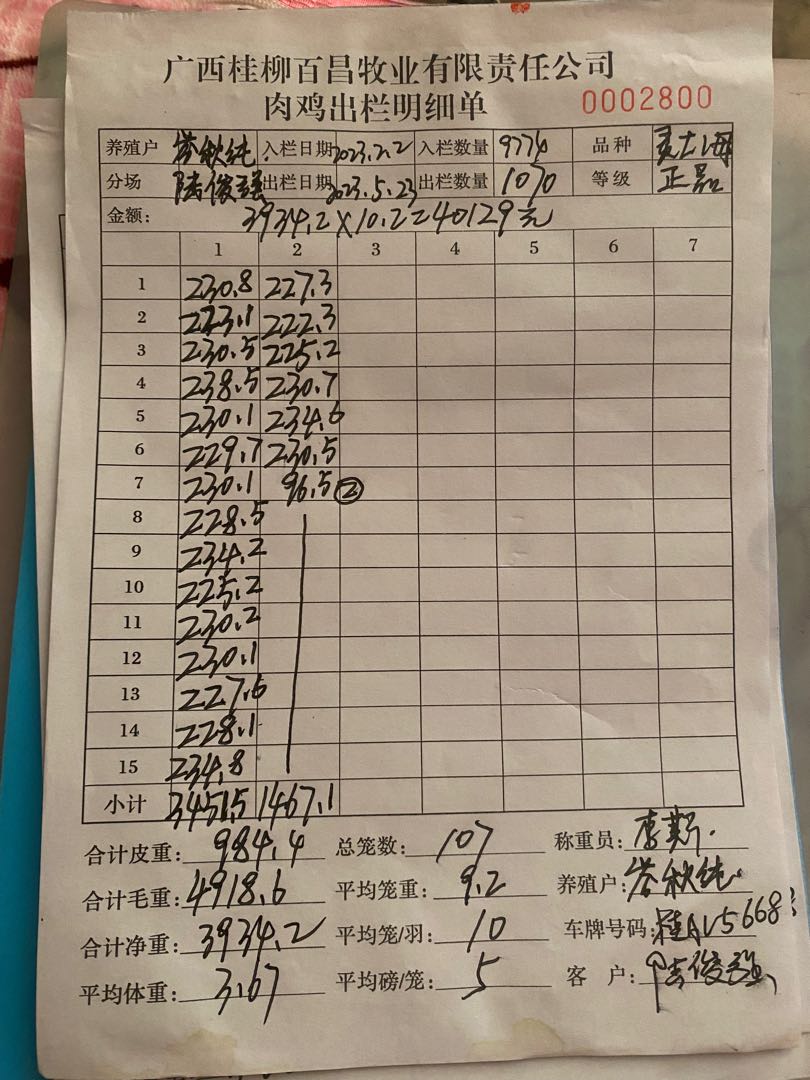 广西桂柳百昌牧业有限责任公司
肉鸡出栏明细单 0002800
养殖户 秋纯 入栏日期 2023.2.2 入栏数量 9774 品种
分场 陆俊强 出栏日期 2023.5.23 出栏数量 1070 等级 正品
金额: 3934.2×10.2=40129元
1 2 3 4 5 6 7
1 230.8 227.3
2 223.1 222.3
3 230.5 225.2
4 238.5 230.7
5 230.1 234.6
6 229.7 230.5
7 230.1 96.5 ②
8 228.5
9 234.2
10 225.2
11 230.2
12 230.1
13 227.6
14 228.1
15 234.8
小计 3451.5 1467.1
合计皮重: 984.4 总笼数: 107 称重员: 李
合计毛重: 4918.6 平均笼重: 9.2 养殖户: 秋纯
合计净重: 3934.2 平均笼/羽: 10 车牌号码: 5668
平均体重: 3.67 平均磅/笼: 5 客户: 陆俊强